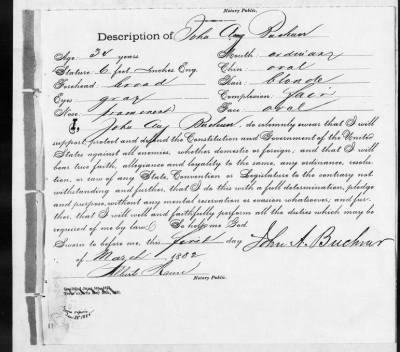 Notary Public.
Description of John Aug Buchner
Age: 34 years Mouth ordinary
Stature 6 feet - inches Eng Chin oval
Forehead broad Hair blonde
Eyes gray Complexion fair
Nose prominent Face oval
I, John Aug Buchner, do solemnly swear that I will
support, protect and defend the Constitution and Government of the United
States against all enemies, whether domestic or foreign; and that I will
bear true faith, allegiance and loyalty to the same, any ordinance, resolu-
tion, or law of any State, Convention or Legislature to the contrary not-
withstanding and further, that I do this with a full determination, pledge
and purpose, without any mental reservation or evasion whatsoever; and fur-
ther, that I will well and faithfully perform all the duties which may be
required of me by law: So help me God
Sworn to before me, this first day John A. Buchner
of March 1882
Notary Public.